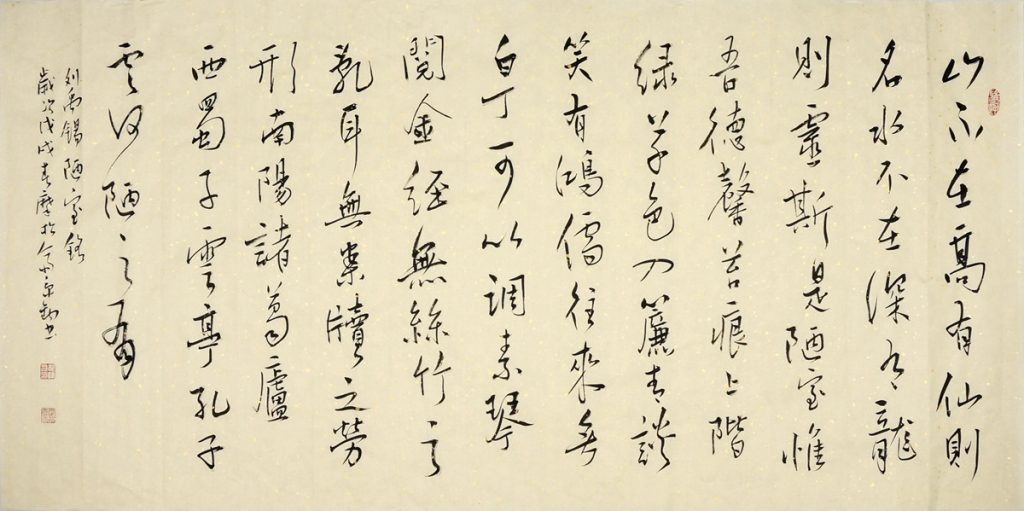 山不在高有仙則
名水不在深有龍
則靈斯是陋室惟
吾德馨苔痕上階
綠草色入簾青談
笑有鴻儒往來無
白丁可以調素琴
閱金經無絲竹之
亂耳無案牘之勞
形南陽諸葛廬
西蜀子雲亭孔子
云何陋之有
刘禹錫陋室銘
歲次戊戌春書